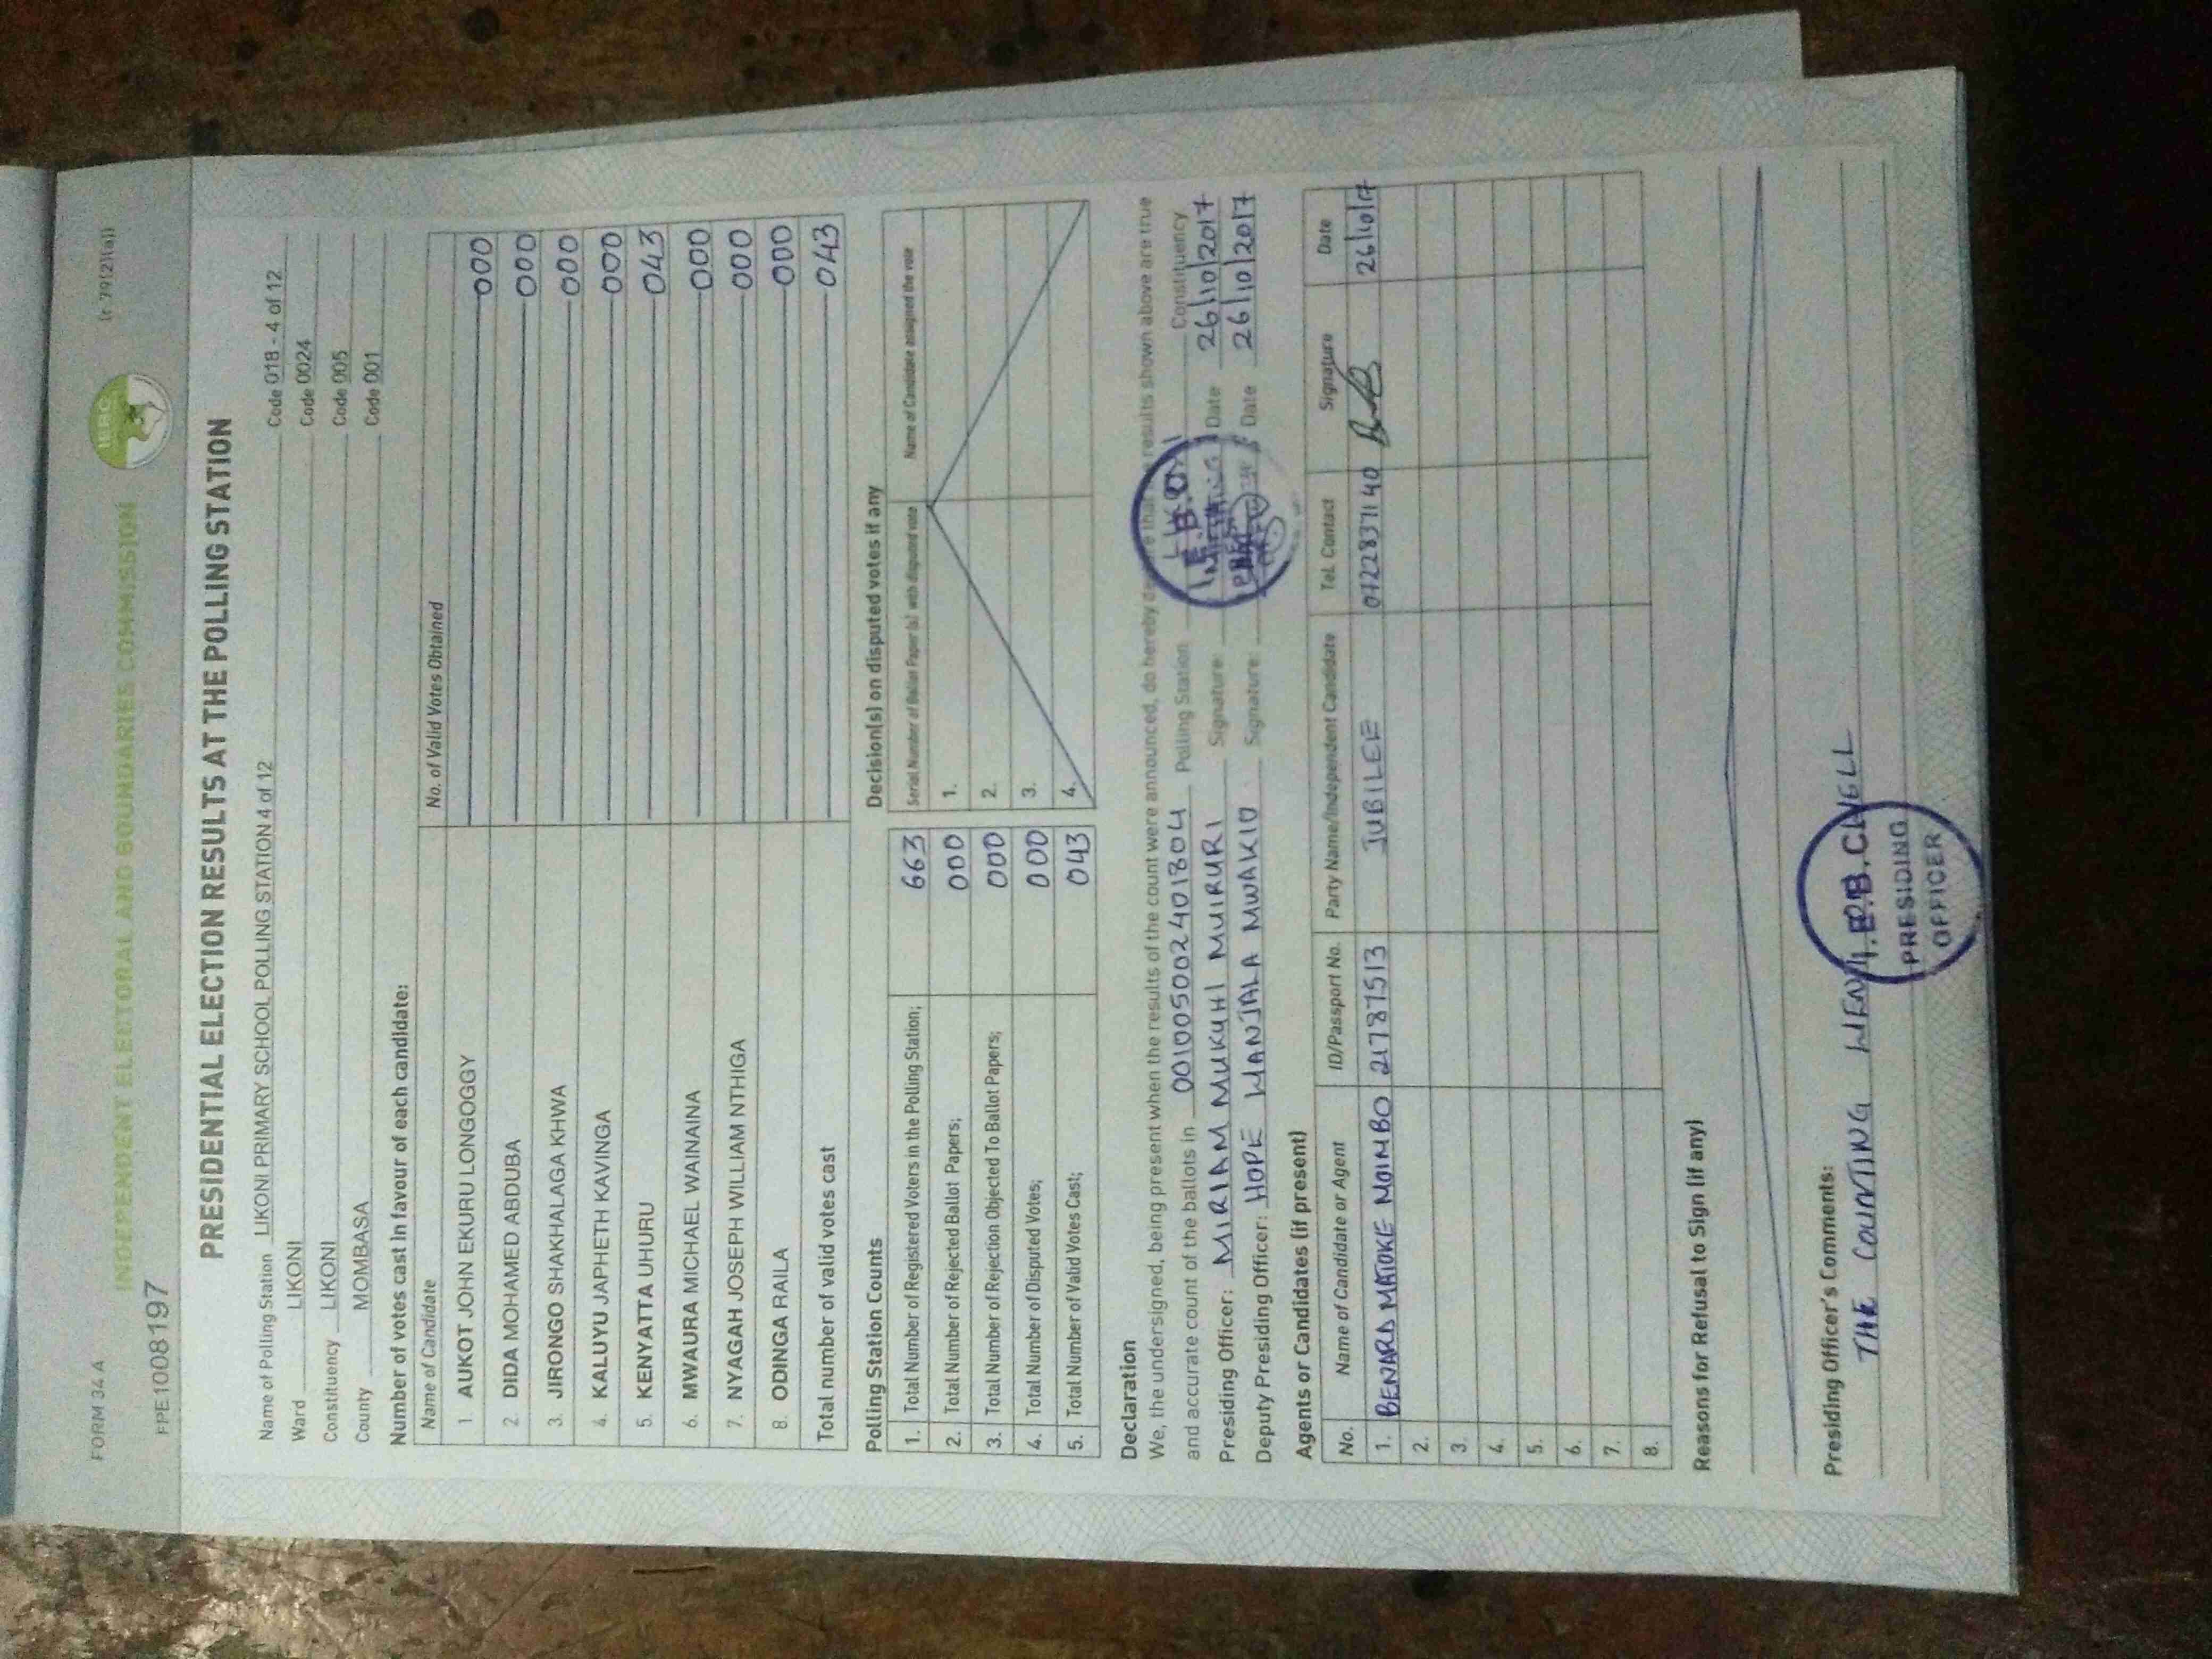 FORM 34 A
(r 79(2)(a))
INDEPENDENT ELECTORAL AND BOUNDARIES COMMISSION
IEBC
FPE1008197
PRESIDENTIAL ELECTION RESULTS AT THE POLLING STATION
Name of Polling Station LIKONI PRIMARY SCHOOL POLLING STATION 4 of 12 Code 018 - 4 of 12
Ward LIKONI Code 0024
Constituency LIKONI Code 005
County MOMBASA Code 001
Number of votes cast in favour of each candidate:
Name of Candidate No. of Valid Votes Obtained
1. AUKOT JOHN EKURU LONGOGGY 000
2. DIDA MOHAMED ABDUBA 000
3. JIRONGO SHAKHALAGA KHWA 000
4. KALUYU JAPHETH KAVINGA 000
5. KENYATTA UHURU 043
6. MWAURA MICHAEL WAINAINA 000
7. NYAGAH JOSEPH WILLIAM NTHIGA 000
8. ODINGA RAILA 000
Total number of valid votes cast 043
Polling Station Counts
1. Total Number of Registered Voters in the Polling Station; 663
2. Total Number of Rejected Ballot Papers; 000
3. Total Number of Rejection Objected To Ballot Papers; 000
4. Total Number of Disputed Votes; 000
5. Total Number of Valid Votes Cast; 043
Decision(s) on disputed votes if any
Serial Number of Ballot Paper(s) with disputed vote Name of Candidate assigned the vote
1.
2.
3.
4.
Declaration
We, the undersigned, being present when the results of the count were announced, do hereby declare that the results shown above are true
and accurate count of the ballots in 001005002401804 Polling Station LIKONI Constituency
Presiding Officer: MIRIAM MUKUHI MUIRURI Signature: Date 26/10/2017
Deputy Presiding Officer: HOPE WANJALA MWAKIO Signature: Date 26/10/2017
Agents or Candidates (if present)
No. Name of Candidate or Agent ID/Passport No. Party Name/Independent Candidate Tel. Contact Signature Date
1. BENARD MATOKE MOINBO 21787513 JUBILEE 0722837140 26/10/17
2.
3.
4.
5.
6.
7.
8.
Reasons for Refusal to Sign (if any)
Presiding Officer's Comments:
THE COUNTING WENT WELL
I.E.B.C
PRESIDING
OFFICER